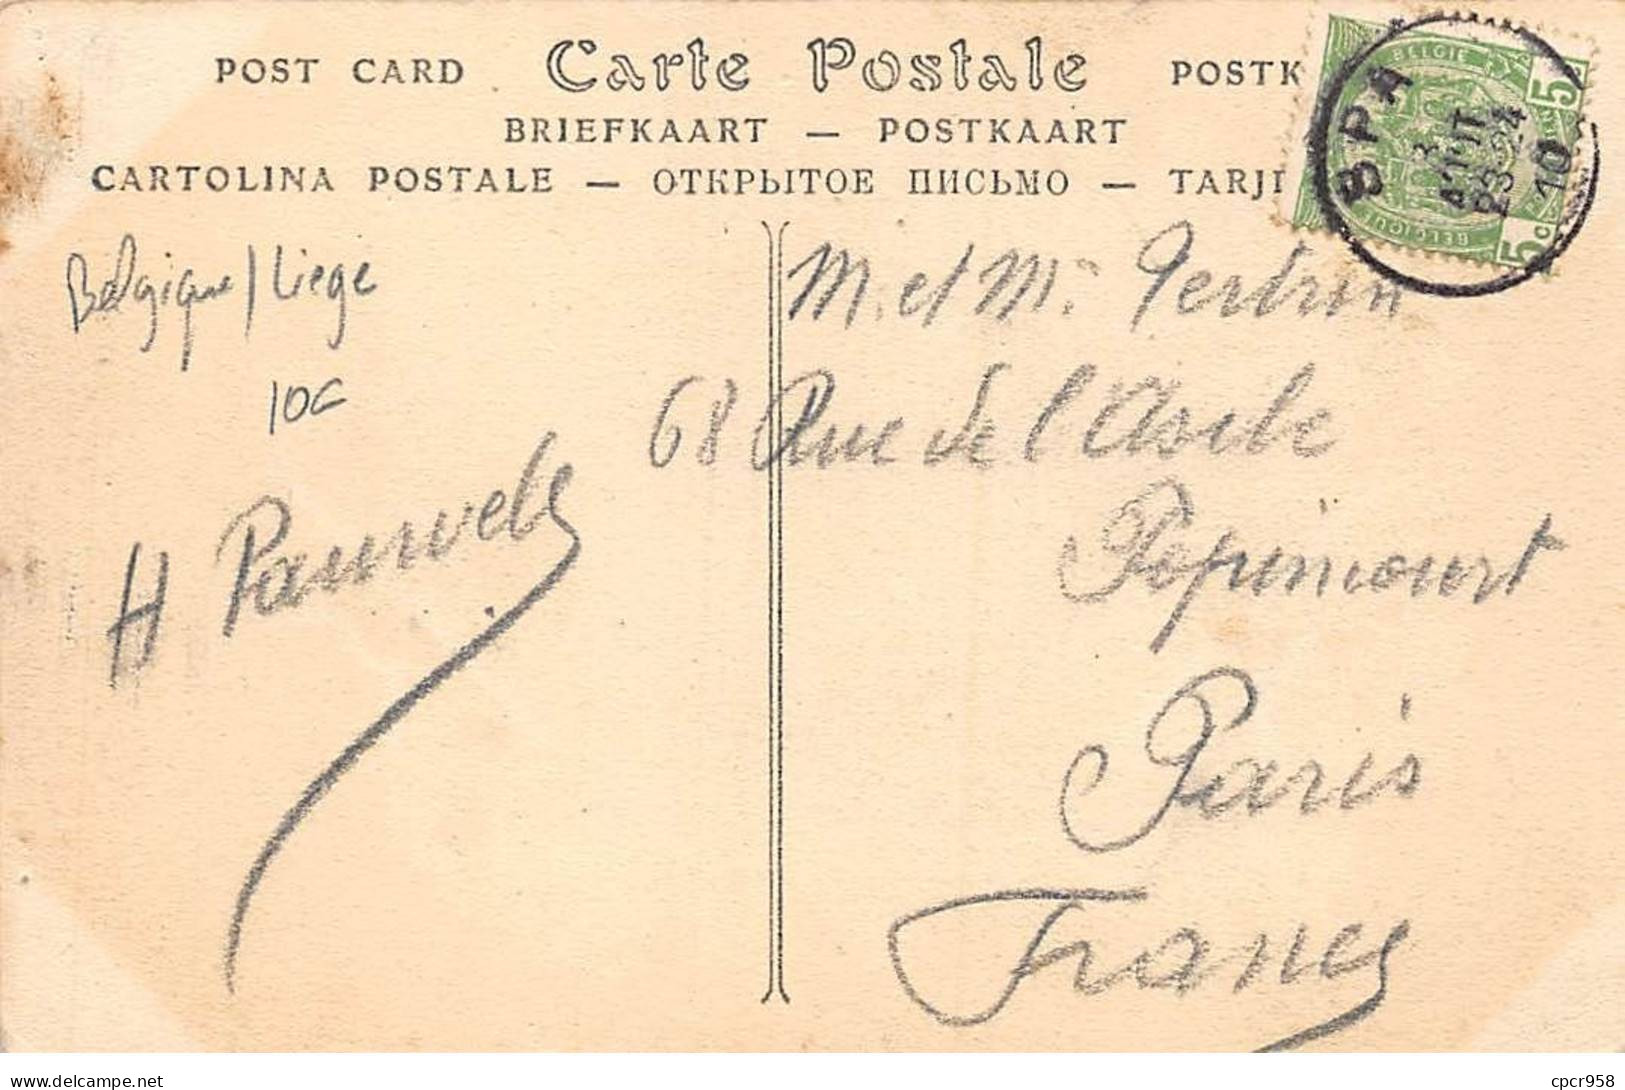 POST CARD Carte Postale POSTK
BRIEFKAART — POSTKAART
CARTOLINA POSTALE — ОТКРЫТОЕ ПИСЬМО — TARJ
BELGIE
5
SPA
3
AOUT
23-24
10
BELGIQUE
5 C
Belgique / Liege
10€
M. et M. Pertrin
68 Rue de l'Asile
Popincourt
Paris
France
H Pauwels
delcampe.net
cpcr958